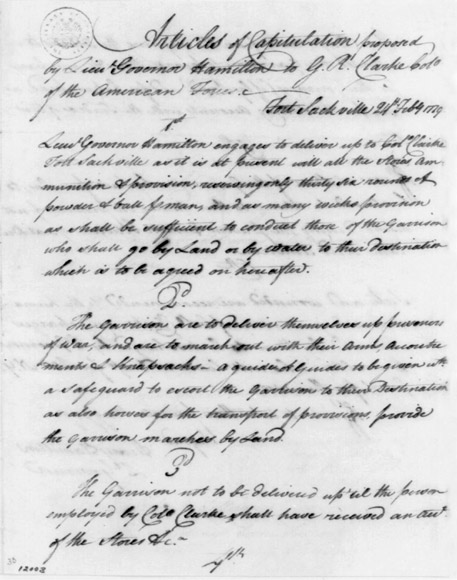 Articles of Capitulation proposed
by Lieut Governor Hamilton to G. R. Clarke Colo
of the American Forces
Fort Sackville 24th Feby 1779
1st
Lieut Governor Hamilton engages to deliver up to Colo Clarke
Fort Sackville as it is at present with all the Stores, Am-
munition & provision, reserving only thirty six rounds of
powder & ball pr man, and as many weeks provision
as shall be sufficient to conduct those of the Garrison
who shall go by Land or by water to their destination
which is to be agreed on hereafter.
2d
The Garrison are to deliver themselves up prisoners
of War, and are to march out with their Arms Accoutre
ments & Knapsacks — a guide or Guides to be given with
a safeguard to escort the Garrison to their Destination
as also horses for the transport of provisions, provided
the Garrison marches by Land.
3d
The Garrison not to be delivered up 'til the person
employed by Colo Clarke shall have received an acct
of the Stores &c —
4th
33
12002